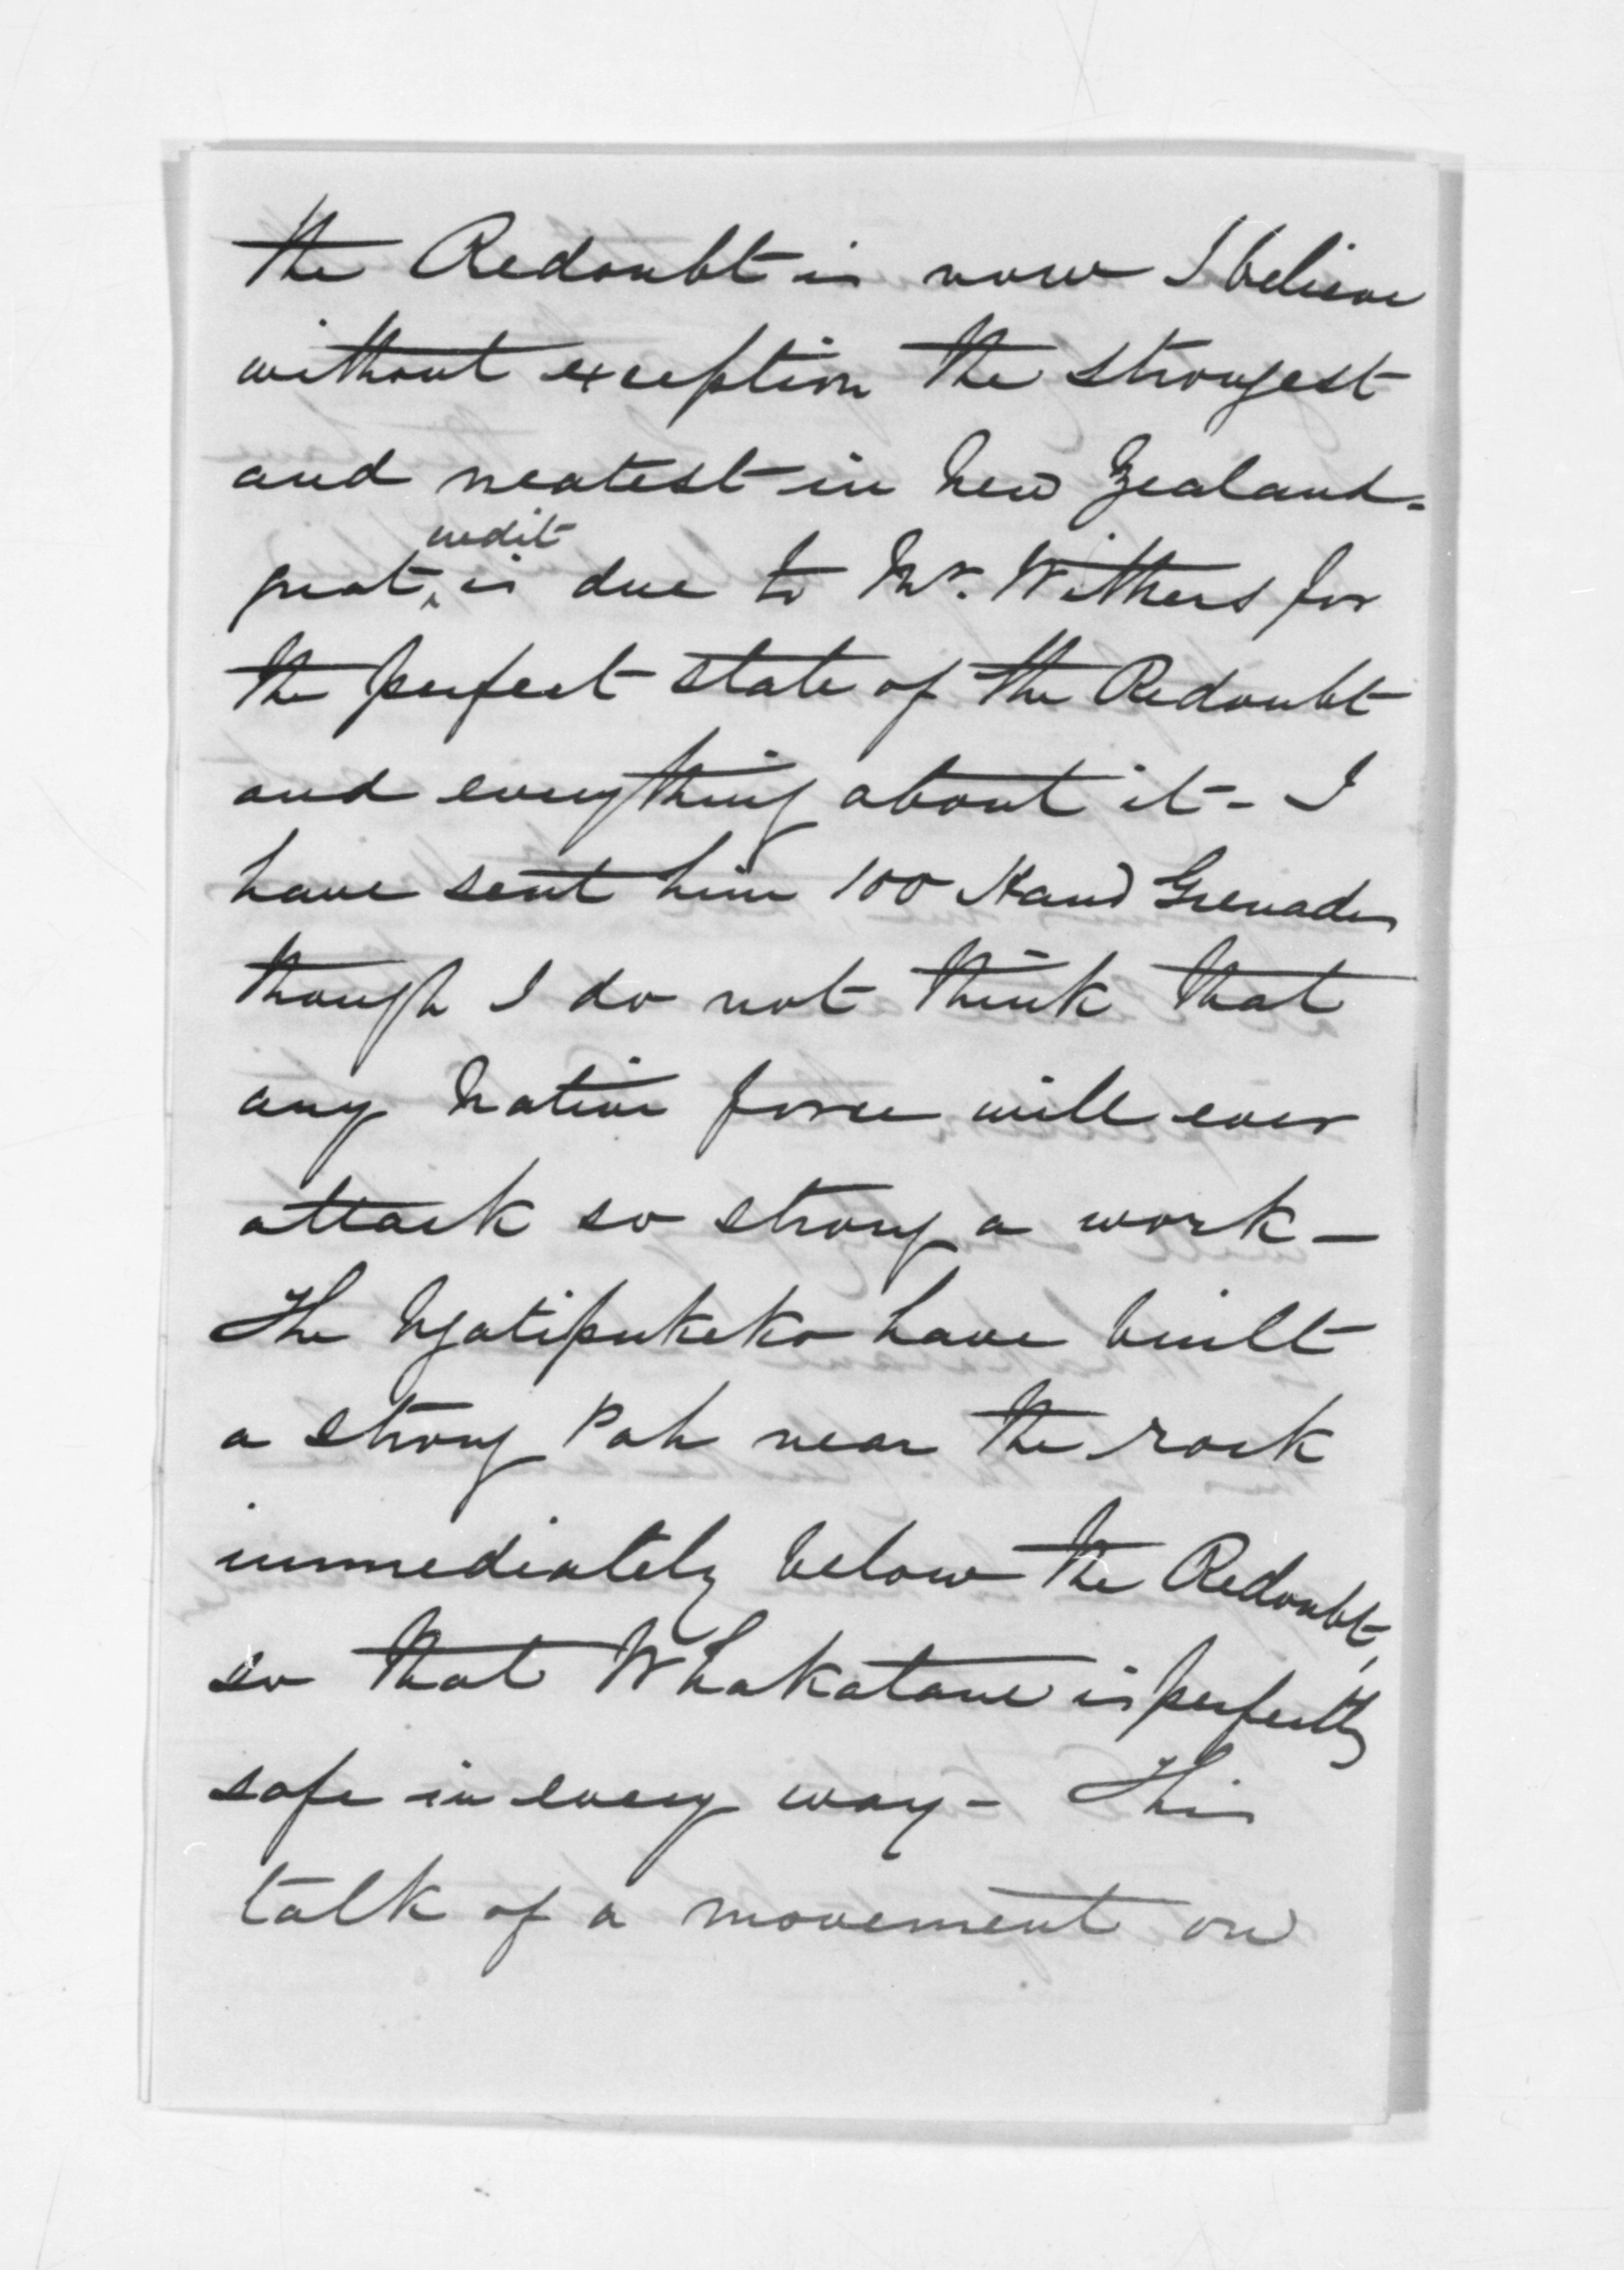 the Redoubt is now I believe
without exception the strongest
and neatest in New Zealand -
great credit is due to Mr. Withers for
the perfect state of the Redoubt
and everything about it - I
have sent him 100 Hand Grenades
though I do not think that
any Native force will ever
attack so strong a work -
The Ngatipukeko have built
a strong Pah near the rock
immediately below the Redoubt,
so that Whakatane is perfectly
safe in every way - This
talk of a movement on